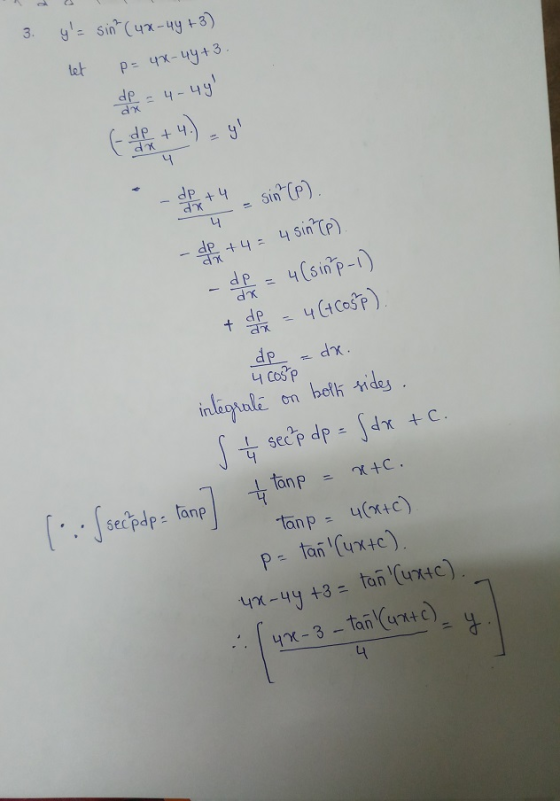 3. y' = sin²(4x-4y+3)
let p = 4x-4y+3.
dp/dx = 4 - 4y'
(-dp/dx + 4.)/4 = y'
(-dp/dx + 4)/4 = sin²(p).
-dp/dx + 4 = 4 sin²(p)
-dp/dx = 4(sin²p-1)
+ dp/dx = 4(+cos²p)
dp/(4cos²p) = dx.
integrate on both sides.
∫ 1/4 sec²p dp = ∫dx + C.
1/4 tanp = x+C.
[∵ ∫sec²pdp = tanp] tanp = 4(x+C)
p = tan⁻¹(4x+C).
4x-4y+3 = tan⁻¹(4x+C).
∴ [(4x-3-tan⁻¹(4x+C))/4 = y.]